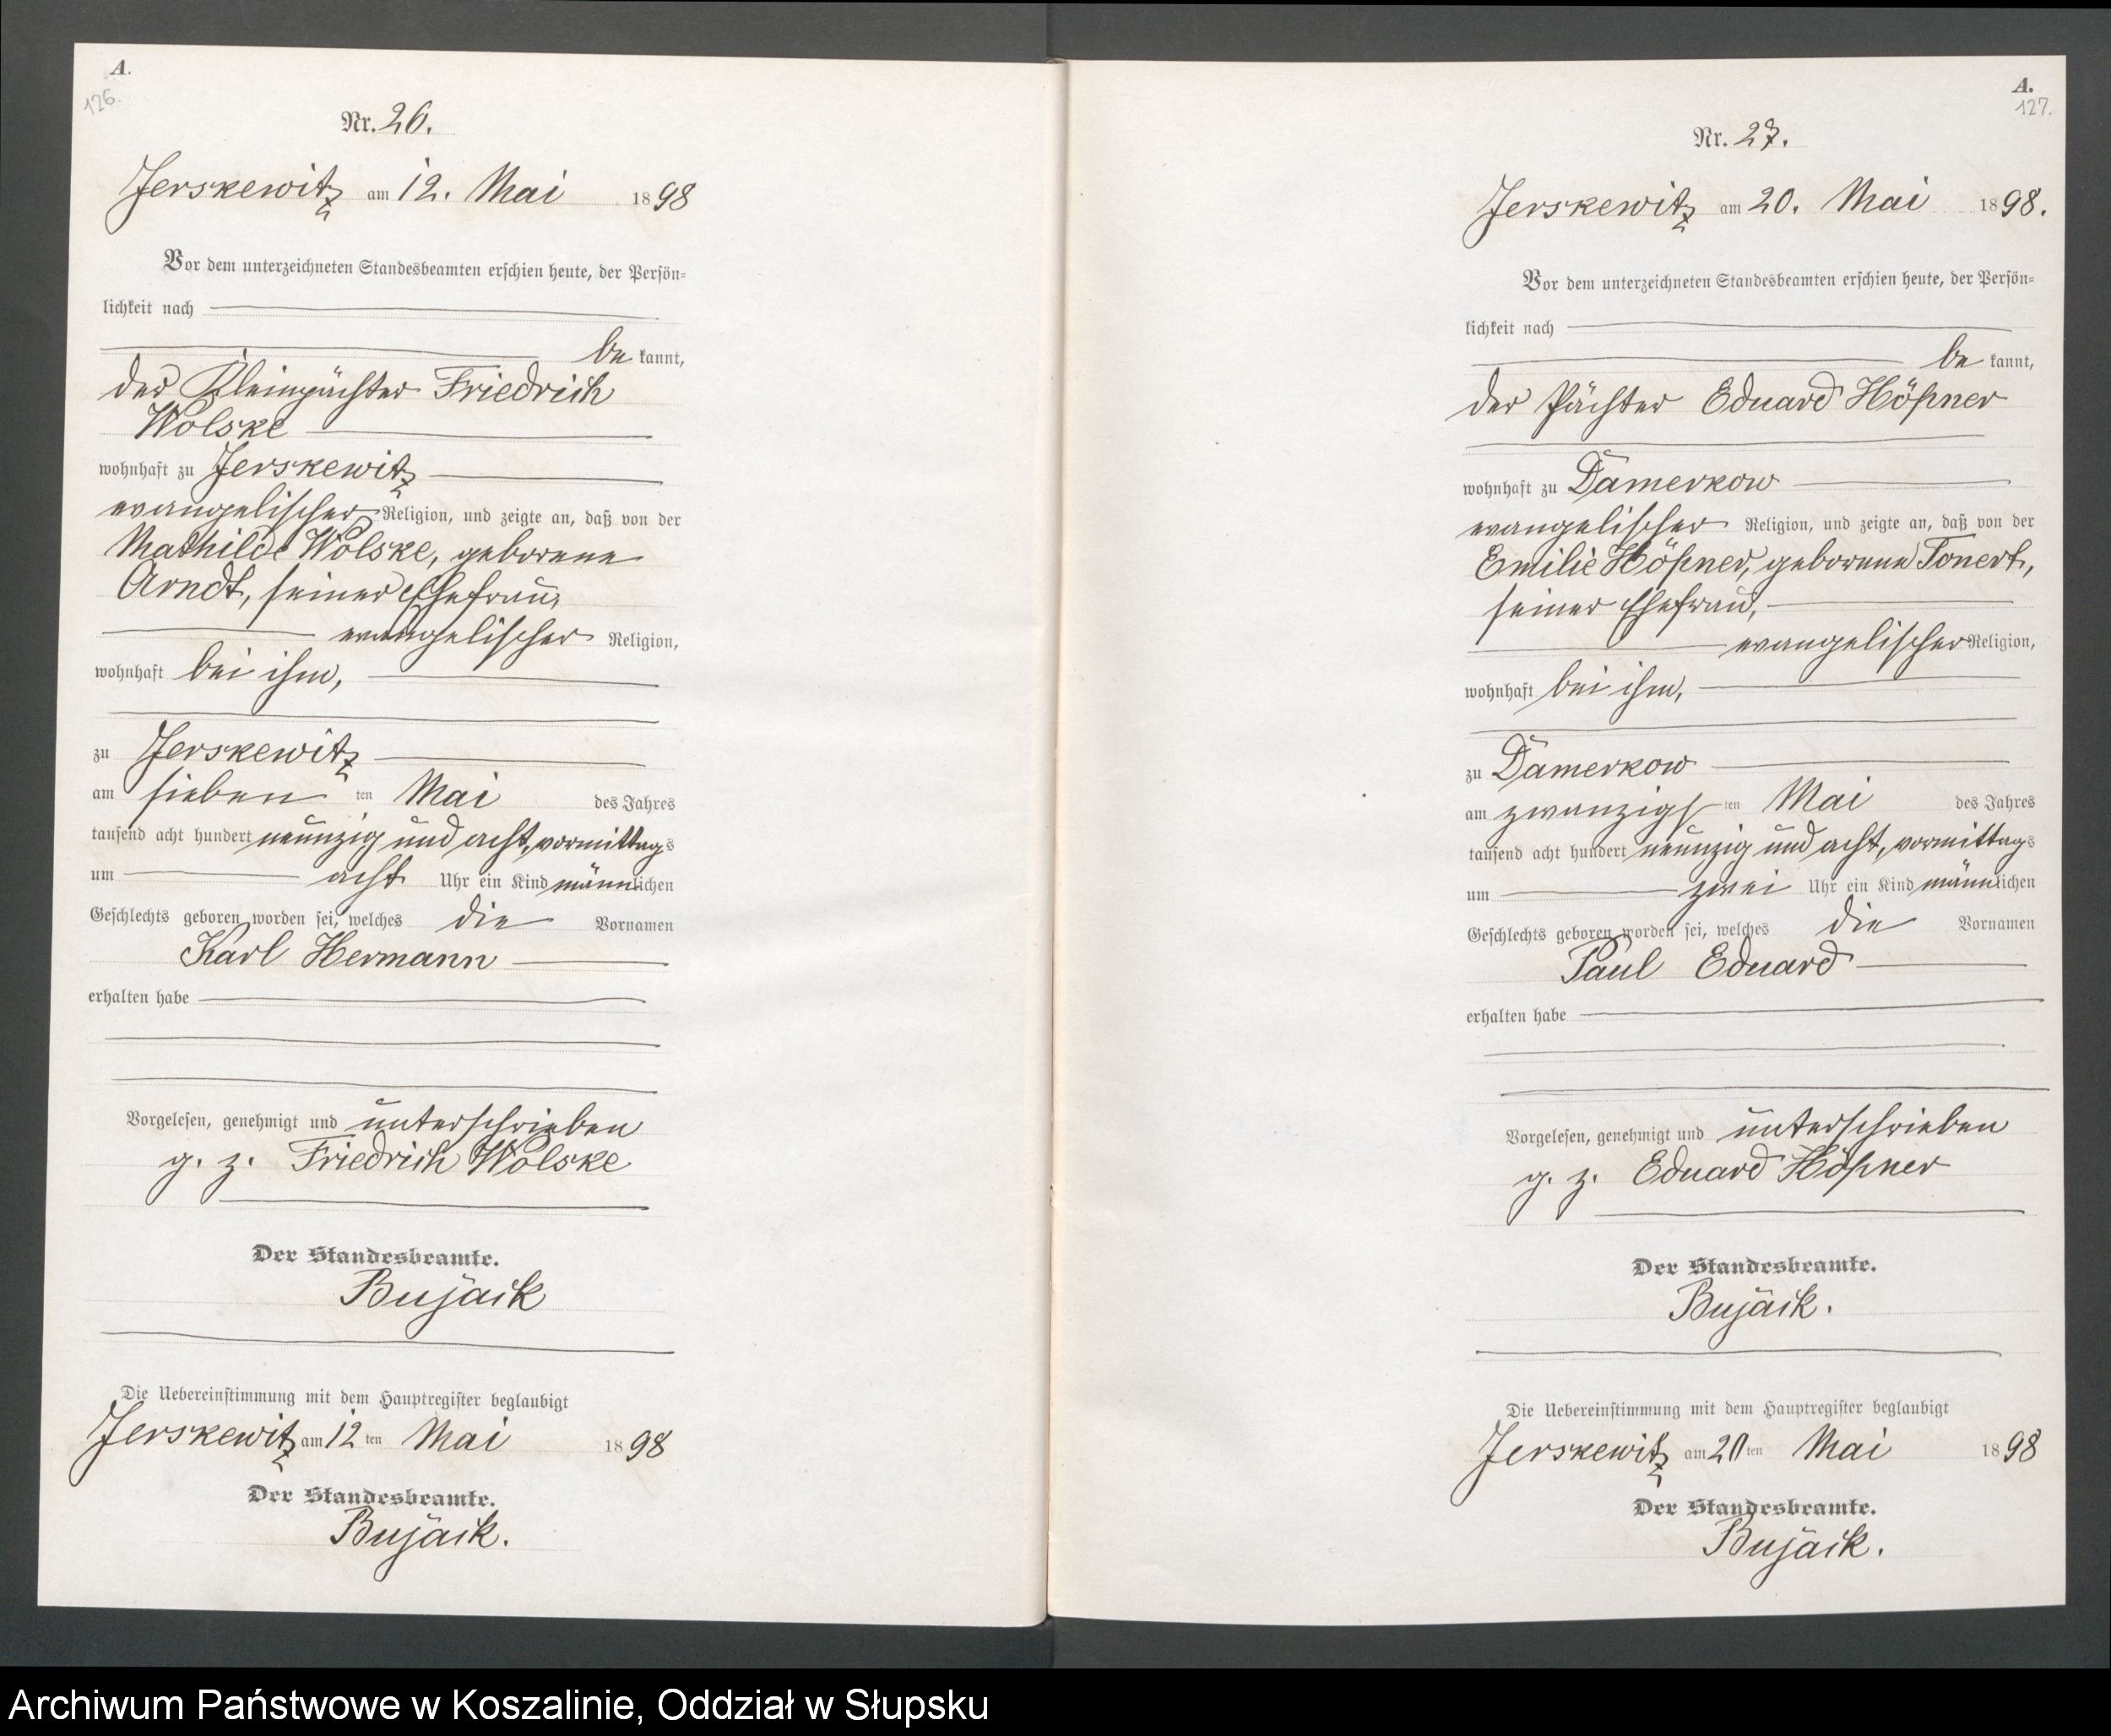 A.
126.
Nr. 26.
Jerskewitz am 12. Mai 1898
Vor dem unterzeichneten Standesbeamten erschien heute, der Persön=
lichkeit nach
be kannt,
der Kleinpächter Friedrich
Wolske
wohnhaft zu Jerskewitz
evangelischer Religion, und zeigte an, daß von der
Mathilde Wolske, geborene
Arndt, seiner Ehefrau,
evangelischer Religion,
wohnhaft bei ihm,
zu Jerskewitz
am sieben ten Mai des Jahres
tausend acht hundert neunzig und acht, vormittags
um acht Uhr ein Kind männlichen
Geschlechts geboren worden sei, welches die Vornamen
Karl Hermann
erhalten habe
Vorgelesen, genehmigt und unterschrieben
g. z. Friedrich Wolske
Der Standesbeamte.
Bujack
Die Uebereinstimmung mit dem Hauptregister beglaubigt
Jerskewitz am 12 ten Mai 1898
Der Standesbeamte.
Bujack.
A.
127.
Nr. 27.
Jerskewitz am 20. Mai 1898.
Vor dem unterzeichneten Standesbeamten erschien heute, der Persön=
lichkeit nach
be kannt,
der Pächter Eduard Höpner
wohnhaft zu Damerkow
evangelischer Religion, und zeigte an, daß von der
Emilie Höpner, geborene Tonert,
seiner Ehefrau,
evangelischer Religion,
wohnhaft bei ihm,
zu Damerkow
am zwanzigs ten Mai des Jahres
tausend acht hundert neunzig und acht, vormittags
um zwei Uhr ein Kind männlichen
Geschlechts geboren worden sei, welches die Vornamen
Paul Eduard
erhalten habe
Vorgelesen, genehmigt und unterschrieben
g. z. Eduard Höpner
Der Standesbeamte.
Bujack.
Die Uebereinstimmung mit dem Hauptregister beglaubigt
Jerskewitz am 20 ten Mai 1898
Der Standesbeamte.
Bujack.
Archiwum Państwowe w Koszalinie, Oddział w Słupsku